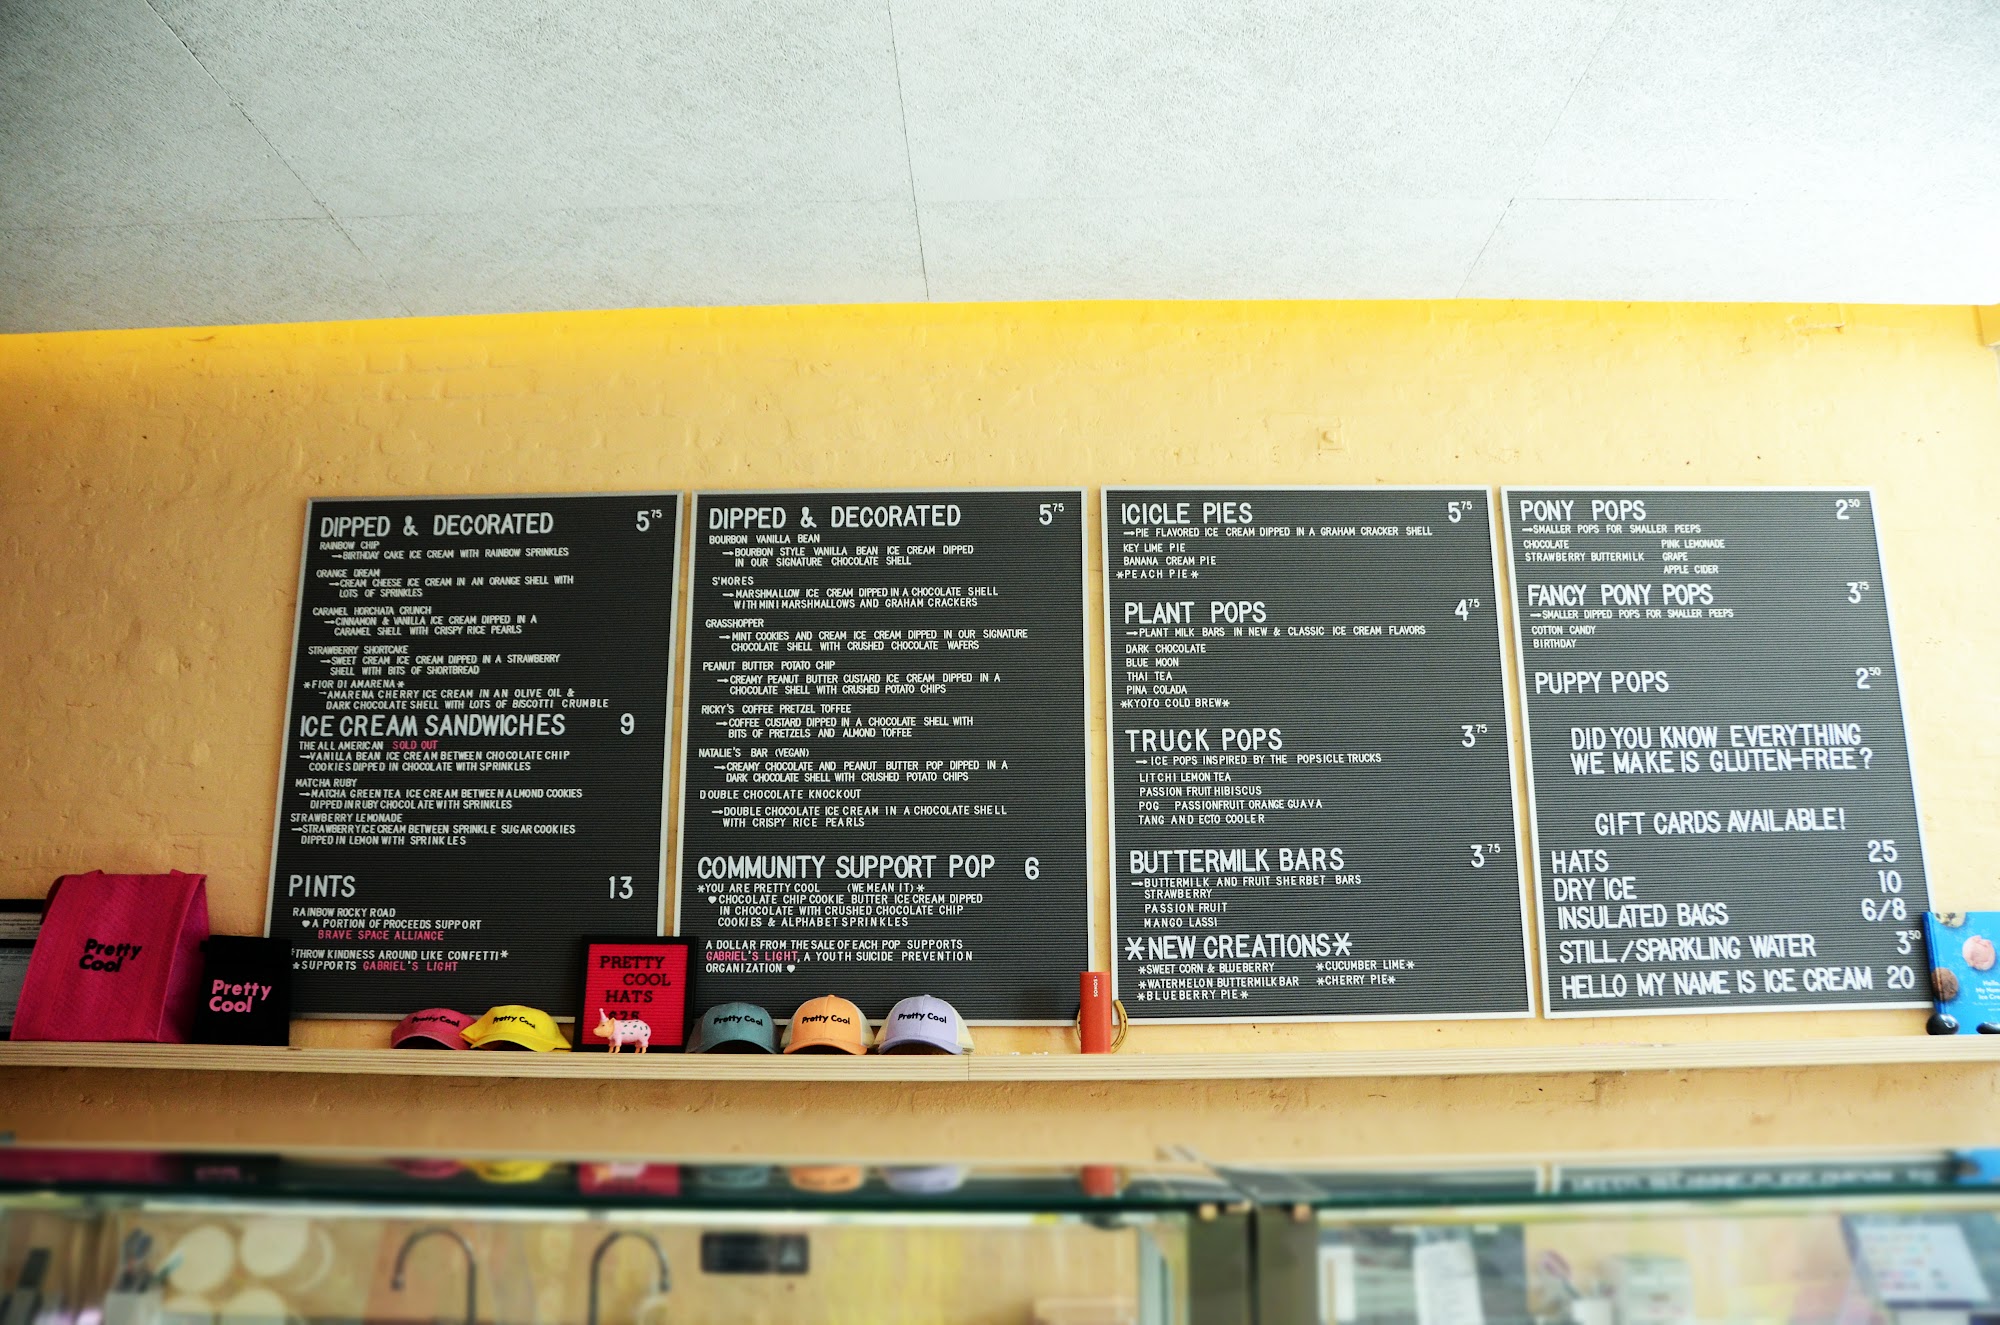 DIPPED & DECORATED 5 75
RAINBOW CHIP
→BIRTHDAY CAKE ICE CREAM WITH RAINBOW SPRINKLES
ORANGE DREAM
→CREAM CHEESE ICE CREAM IN AN ORANGE SHELL WITH
LOTS OF SPRINKLES
CARAMEL HORCHATA CRUNCH
→CINNAMON & VANILLA ICE CREAM DIPPED IN A
CARAMEL SHELL WITH CRISPY RICE PEARLS
STRAWBERRY SHORTCAKE
→SWEET CREAM ICE CREAM DIPPED IN A STRAWBERRY
SHELL WITH BITS OF SHORTBREAD
*FIOR DI AMARENA*
→AMARENA CHERRY ICE CREAM IN AN OLIVE OIL &
DARK CHOCOLATE SHELL WITH LOTS OF BISCOTTI CRUMBLE
ICE CREAM SANDWICHES 9
THE ALL AMERICAN SOLD OUT
→VANILLA BEAN ICE CREAM BETWEEN CHOCOLATE CHIP
COOKIES DIPPED IN CHOCOLATE WITH SPRINKLES
MATCHA RUBY
→MATCHA GREEN TEA ICE CREAM BETWEEN ALMOND COOKIES
DIPPED IN RUBY CHOCOLATE WITH SPRINKLES
STRAWBERRY LEMONADE
→STRAWBERRY ICE CREAM BETWEEN SPRINKLE SUGAR COOKIES
DIPPED IN LEMON WITH SPRINKLES
PINTS 13
RAINBOW ROCKY ROAD
♥A PORTION OF PROCEEDS SUPPORT
BRAVE SPACE ALLIANCE
*THROW KINDNESS AROUND LIKE CONFETTI*
*SUPPORTS GABRIEL'S LIGHT
DIPPED & DECORATED 5 75
BOURBON VANILLA BEAN
→BOURBON STYLE VANILLA BEAN ICE CREAM DIPPED
IN OUR SIGNATURE CHOCOLATE SHELL
S'MORES
→MARSHMALLOW ICE CREAM DIPPED IN A CHOCOLATE SHELL
WITH MINI MARSHMALLOWS AND GRAHAM CRACKERS
GRASSHOPPER
→MINT COOKIES AND CREAM ICE CREAM DIPPED IN OUR SIGNATURE
CHOCOLATE SHELL WITH CRUSHED CHOCOLATE WAFERS
PEANUT BUTTER POTATO CHIP
→CREAMY PEANUT BUTTER CUSTARD ICE CREAM DIPPED IN A
CHOCOLATE SHELL WITH CRUSHED POTATO CHIPS
RICKY'S COFFEE PRETZEL TOFFEE
→COFFEE CUSTARD DIPPED IN A CHOCOLATE SHELL WITH
BITS OF PRETZELS AND ALMOND TOFFEE
NATALIE'S BAR (VEGAN)
→CREAMY CHOCOLATE AND PEANUT BUTTER POP DIPPED IN A
DARK CHOCOLATE SHELL WITH CRUSHED POTATO CHIPS
DOUBLE CHOCOLATE KNOCKOUT
→DOUBLE CHOCOLATE ICE CREAM IN A CHOCOLATE SHELL
WITH CRISPY RICE PEARLS
COMMUNITY SUPPORT POP 6
*YOU ARE PRETTY COOL (WE MEAN IT)*
♥CHOCOLATE CHIP COOKIE BUTTER ICE CREAM DIPPED
IN CHOCOLATE WITH CRUSHED CHOCOLATE CHIP
COOKIES & ALPHABET SPRINKLES
A DOLLAR FROM THE SALE OF EACH POP SUPPORTS
GABRIEL'S LIGHT, A YOUTH SUICIDE PREVENTION
ORGANIZATION♥
ICICLE PIES 5 75
→PIE FLAVORED ICE CREAM DIPPED IN A GRAHAM CRACKER SHELL
KEY LIME PIE
BANANA CREAM PIE
*PEACH PIE*
PLANT POPS 4 75
→PLANT MILK BARS IN NEW & CLASSIC ICE CREAM FLAVORS
DARK CHOCOLATE
BLUE MOON
THAI TEA
PINA COLADA
*KYOTO COLD BREW*
TRUCK POPS 3 75
→ICE POPS INSPIRED BY THE POPSICLE TRUCKS
LITCHI LEMON TEA
PASSION FRUIT HIBISCUS
POG PASSIONFRUIT ORANGE GUAVA
TANG AND ECTO COOLER
BUTTERMILK BARS 3 75
→BUTTERMILK AND FRUIT SHERBET BARS
STRAWBERRY
PASSION FRUIT
MANGO LASSI
*NEW CREATIONS*
*SWEET CORN & BLUEBERRY *CUCUMBER LIME*
*WATERMELON BUTTERMILK BAR *CHERRY PIE*
*BLUEBERRY PIE*
PONY POPS 2 50
→SMALLER POPS FOR SMALLER PEEPS
CHOCOLATE PINK LEMONADE
STRAWBERRY BUTTERMILK GRAPE
APPLE CIDER
FANCY PONY POPS 3 75
→SMALLER DIPPED POPS FOR SMALLER PEEPS
COTTON CANDY
BIRTHDAY
PUPPY POPS 2 50
DID YOU KNOW EVERYTHING
WE MAKE IS GLUTEN-FREE?
GIFT CARDS AVAILABLE!
HATS 25
DRY ICE 10
INSULATED BAGS 6/8
STILL/SPARKLING WATER 3 50
HELLO MY NAME IS ICE CREAM 20
Pretty
Cool
Pretty
Cool
Pretty Cool
Pretty Cool
PRETTY
COOL
HATS
Pretty Cool
Pretty Cool
Pretty Cool
SONOS